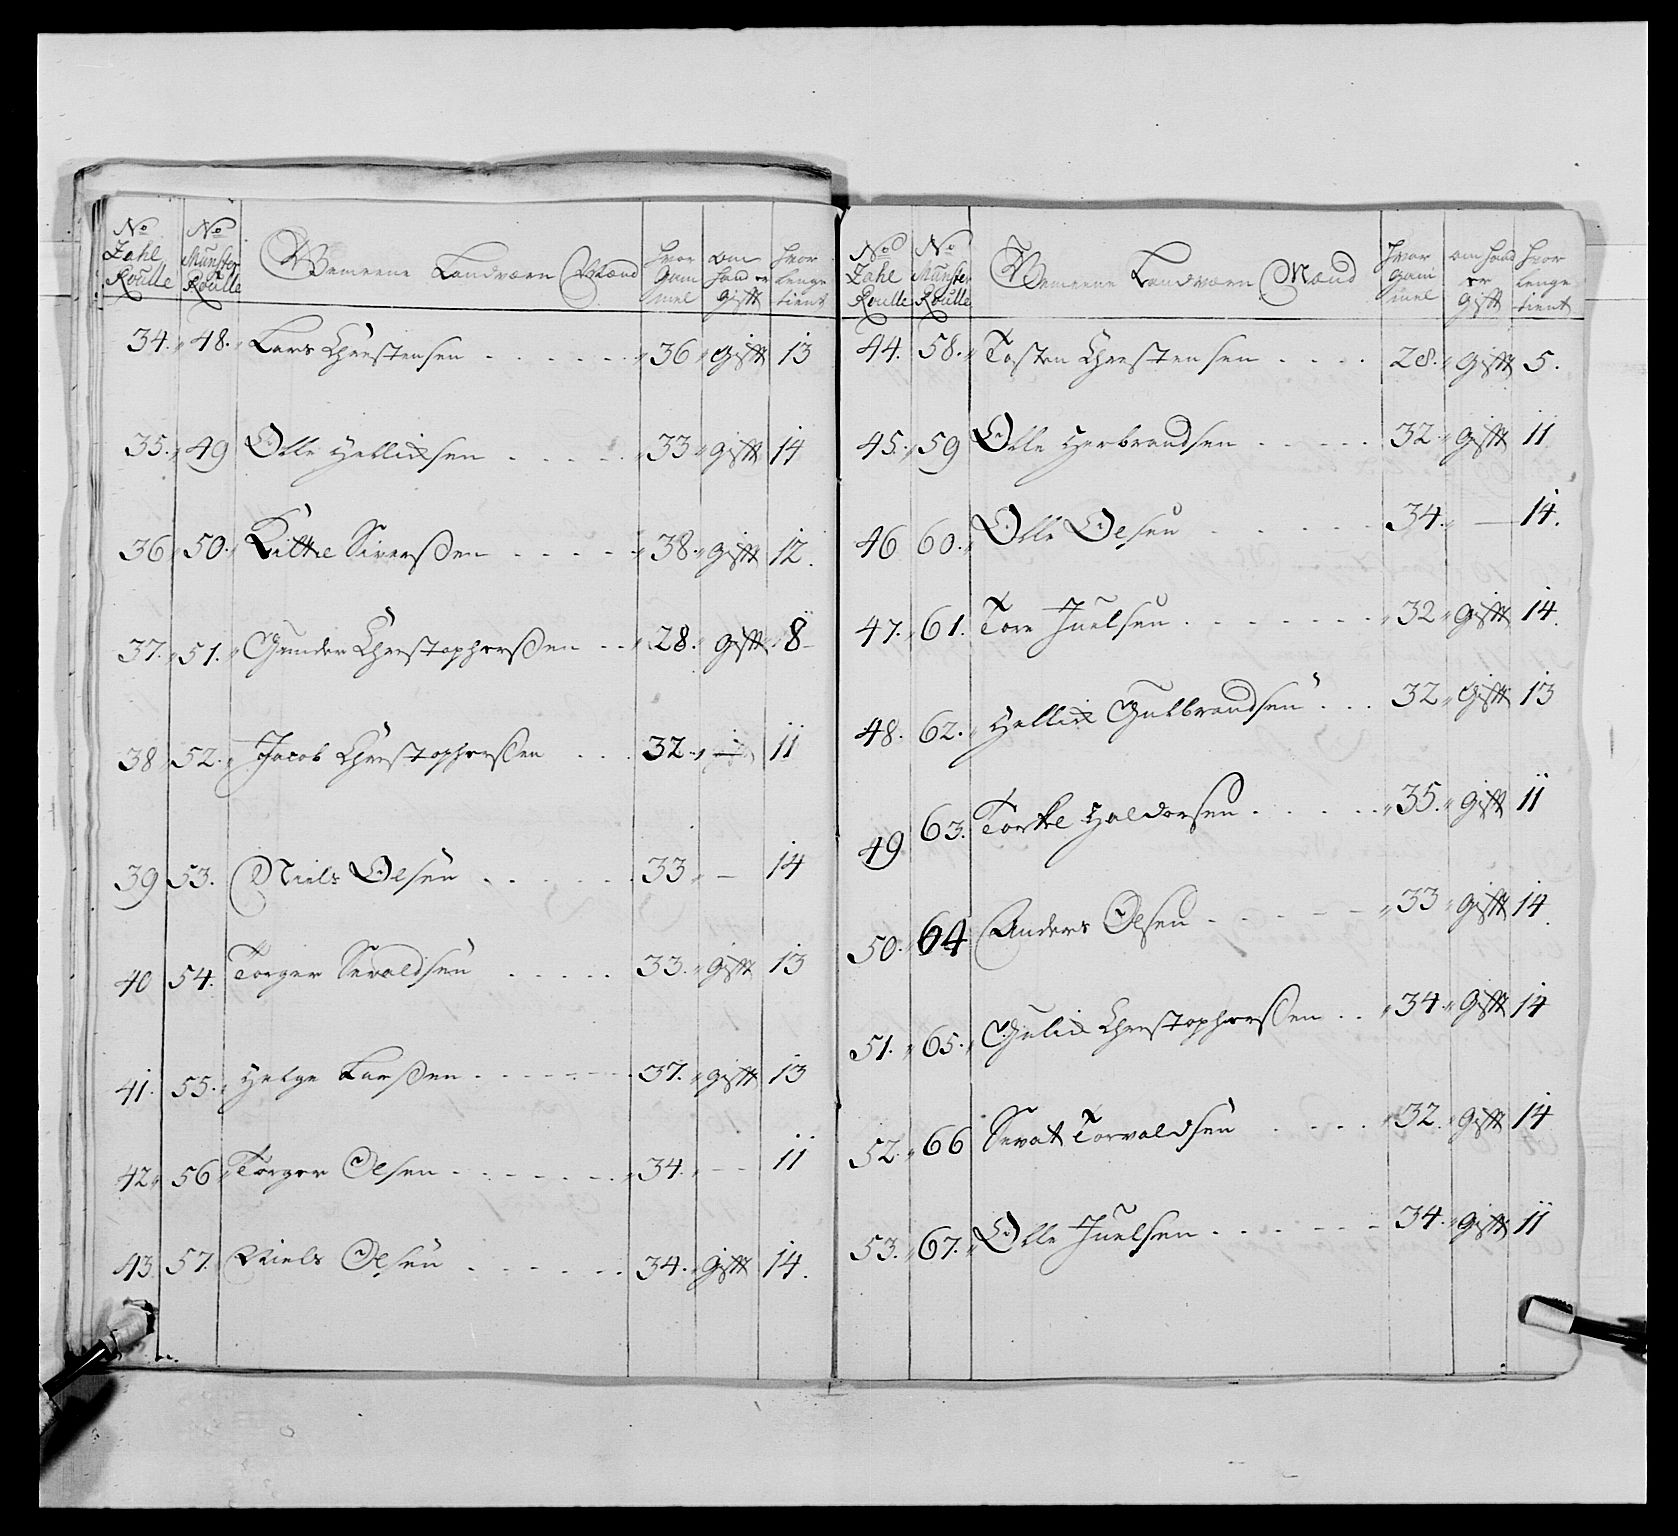 No Zahl Roulle | No Münster Roulle | Gemeene Landværn Mænd | Hvor Gam mel | om hand er Gifft | Hvor lenge tient
34. 48. Lars Christensen 36 Gifft 13
35. 49 Olle Hellichsen 33 gifft 14
36 50. Kittel Siverßen 38. gifft 12.
37. 51. Gunder Christopherßen 28. gifft 8
38 52. Jacob Christopherßen 32. — 11
39 53. Niels Olsen 33 — 14
40 54. Torger Sevaldsen 33. gifft 13
41. 55. Helge Larßen 37. gifft 13
42. 56 Torger Olsen 34. — 11
43. 57. Niels Olsen 34. Gifft 14.
No Zahl Roulle | No Münster Roulle | Gemeene Landværn Mænd | Hvor Gam mel | om hand er Gifft | Hvor lenge tient
44. 58. Tosten Christensen 28. gifft 5.
45. 59 Olle Herbrandsen 32. gifft 11
46 60. Olle Olsen 34. — 14.
47. 61. Tore Juelsen 32 gifft 14.
48. 62. Hellich Gulbrandsen 32 Gifft 13
49 63. Torkel Haldorsen 35. gifft 11
50. 64 Anders Olsen 33 gifft 14.
51. 65. Gulich Christopherßen 34. Gifft 14
52. 66 Sevat Torvaldsen 32. gifft 14
53. 67. Olle Juelsen 34. gifft 11